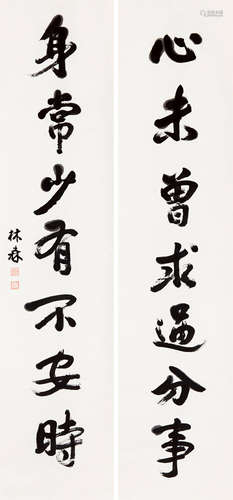 心未曾求過分事
身常少有不安時
林森